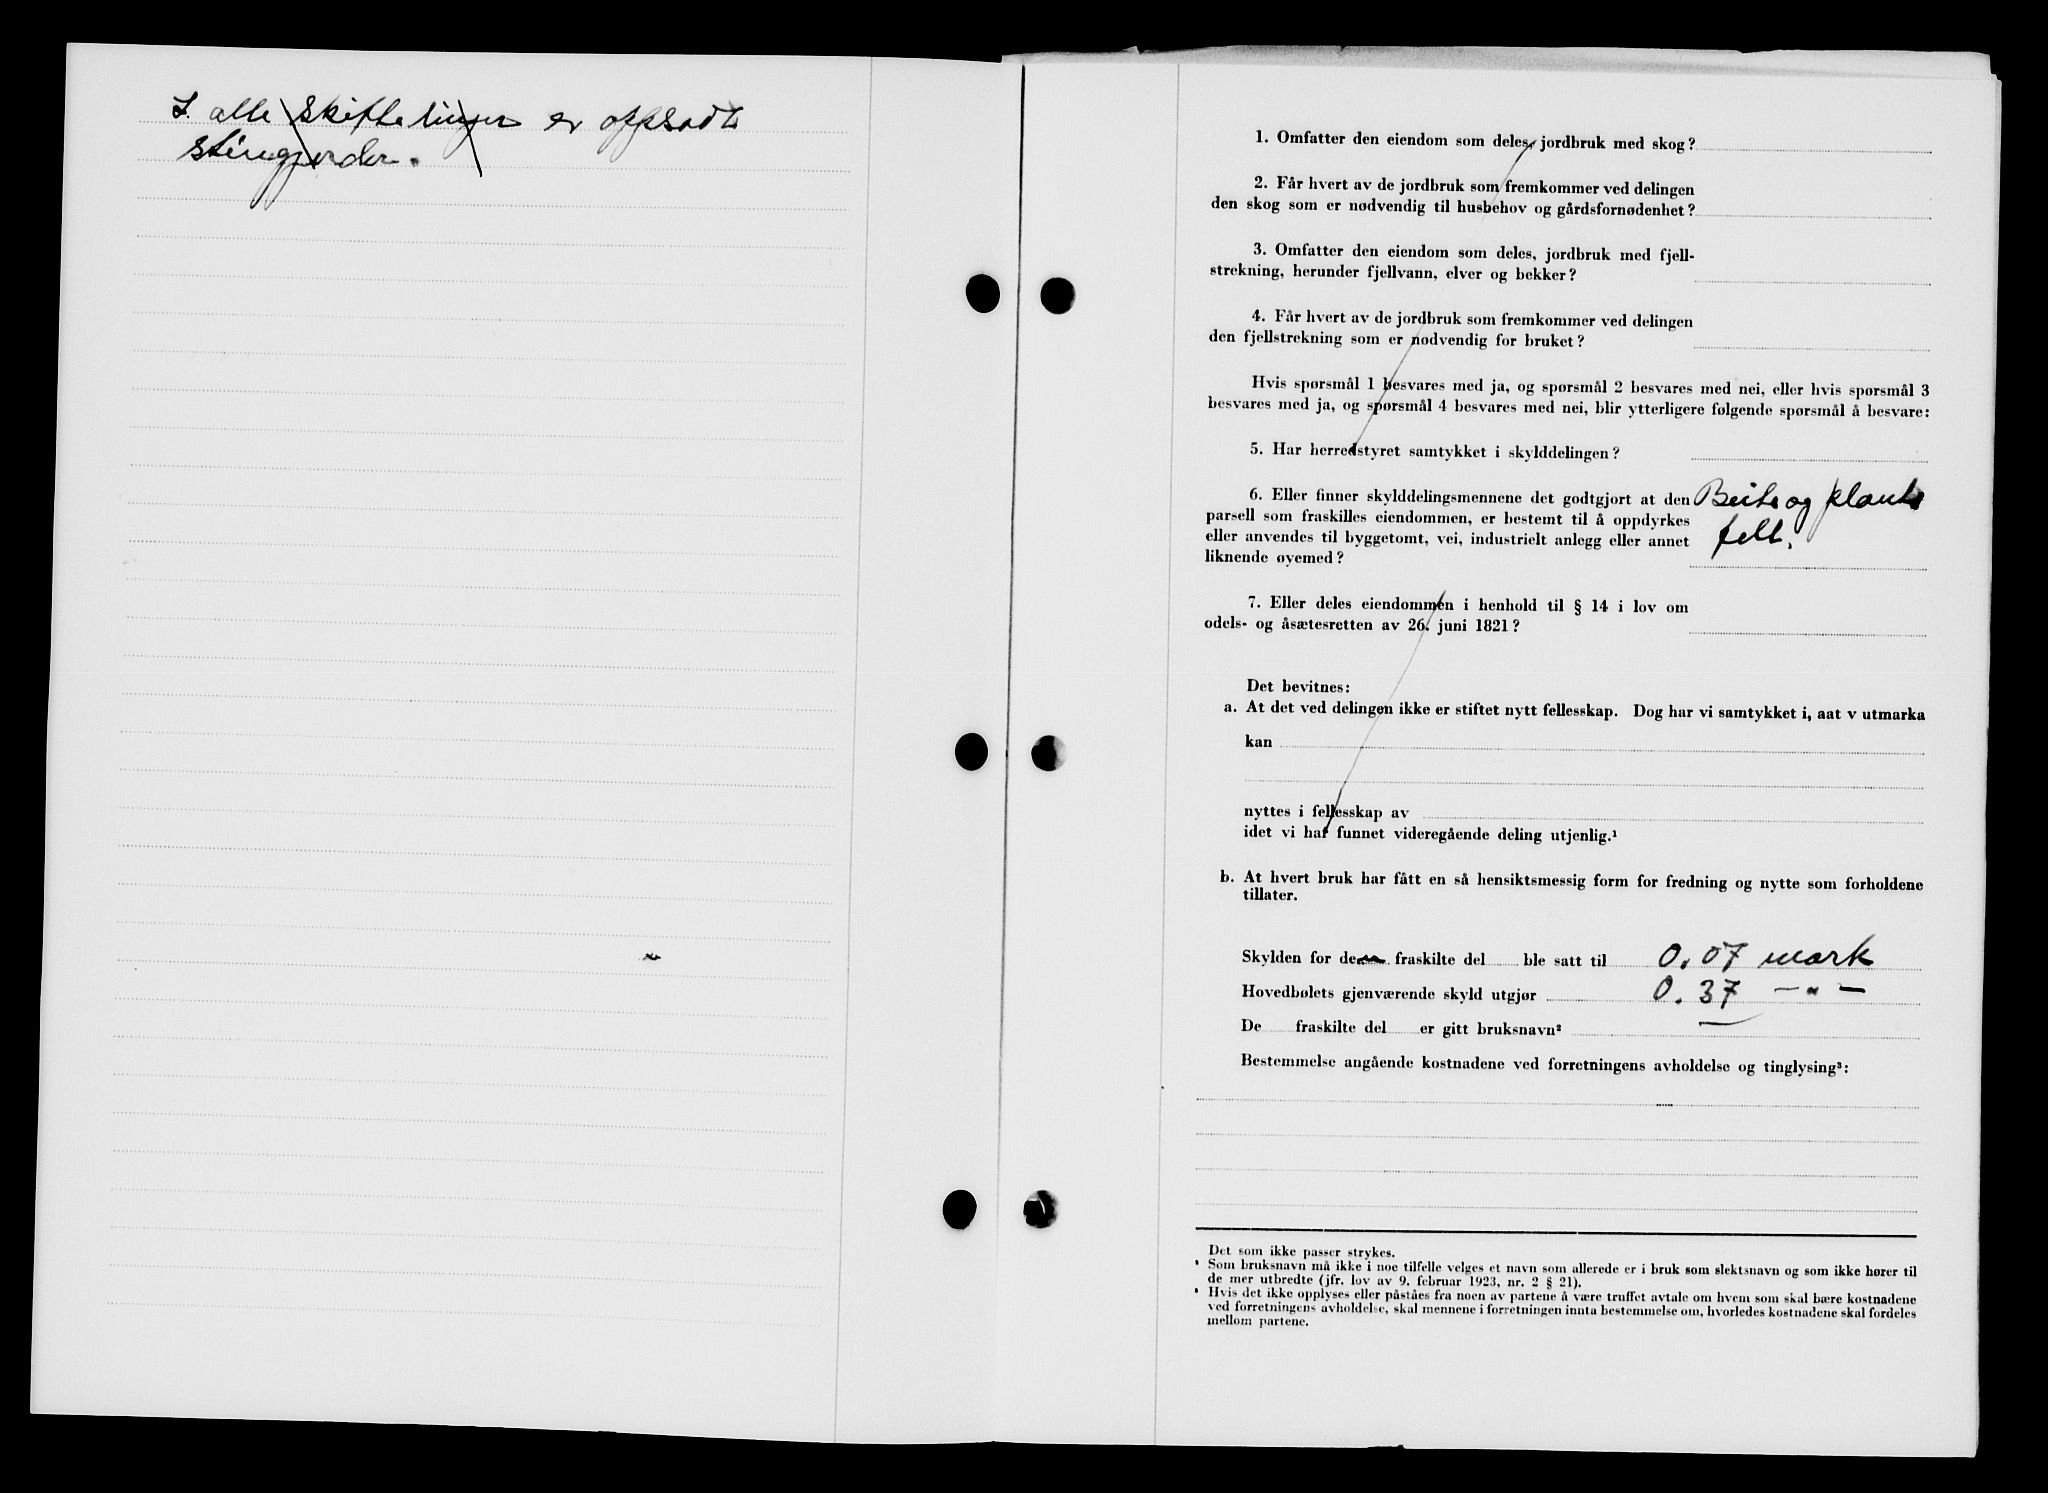 I alle skiftelinjer er oppsadt
steingjerder.
1. Omfatter den eiendom som deles, jordbruk med skog?
2. Får hvert av de jordbruk som fremkommer ved delingen
den skog som er nødvendig til husbehov og gårdsfornødenhet?
3. Omfatter den eiendom som deles, jordbruk med fjell-
strekning, herunder fjellvann, elver og bekker?
4. Får hvert av de jordbruk som fremkommer ved delingen
den fjellstrekning som er nødvendig for bruket?
Hvis spørsmål 1 besvares med ja, og spørsmål 2 besvares med nei, eller hvis spørsmål 3
besvares med ja, og spørsmål 4 besvares med nei, blir ytterligere følgende spørsmål å besvare:
5. Har herredstyret samtykket i skylddelingen?
6. Eller finner skylddelingsmennene det godtgjort at den
parsell som fraskilles eiendommen, er bestemt til å oppdyrkes
eller anvendes til byggetomt, vei, industrielt anlegg eller annet
liknende øyemed?
Beite og plante
felt.
7. Eller deles eiendommen i henhold til § 14 i lov om
odels- og åsætesretten av 26. juni 1821?
Det bevitnes:
a. At det ved delingen ikke er stiftet nytt fellesskap. Dog har vi samtykket i, aat v utmarka
kan
nyttes i fellesskap av
idet vi har funnet videregående deling utjenlig.¹
b. At hvert bruk har fått en så hensiktsmessig form for fredning og nytte som forholdene
tillater.
Skylden for den fraskilte del ble satt til 0.07 mark
Hovedbølets gjenværende skyld utgjør 0.37 -"-
De fraskilte del er gitt bruksnavn²
Bestemmelse angående kostnadene ved forretningens avholdelse og tinglysing³:
Det som ikke passer strykes.
Som bruksnavn må ikke i noe tilfelle velges et navn som allerede er i bruk som slektsnavn og som ikke hører til
de mer utbredte (jfr. lov av 9. februar 1923, nr. 2 § 21).
Hvis det ikke opplyses eller påståes fra noen av partene å være truffet avtale om hvem som skal bære kostnadene
ved forretningens avholdelse, skal mennene i forretningen innta bestemmelse om, hvorledes kostnadene skal fordeles
mellom partene.